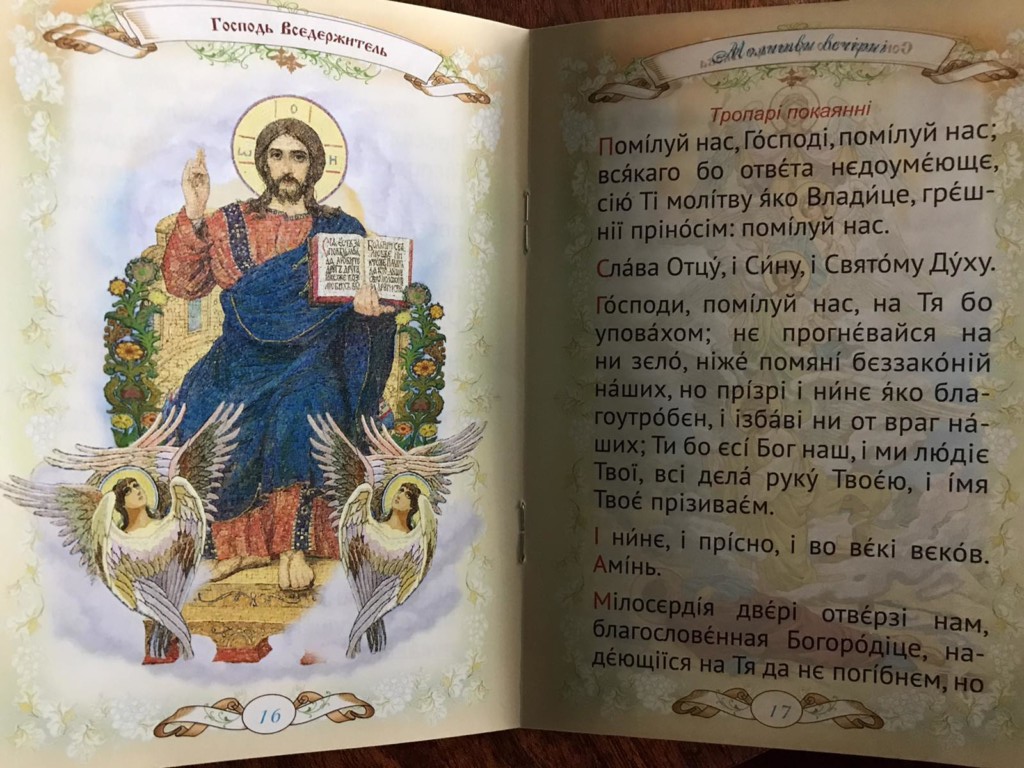 Господь Вседержитель
16
Молитви вечірні
Тропарі покаянні
Помі́луй нас, Го́споді, помі́луй нас;
вся́каго бо отвє́та нєдоумє́ющє,
сію́ Ті молі́тву я́ко Влади́це, грє́ш-
нії пріно́сім: помі́луй нас.
Сла́ва Отцу́, і Си́ну, і Свято́му Ду́ху.
Го́споди, помі́луй нас, на Тя бо
упова́хом; нє прогнє́вайся на
ни зєло́, ніжє́ помяні́ бєззако́ній
на́ших, но прі́зрі і ни́нє я́ко бла-
гоутро́бєн, і ізба́ві ни от враг на́-
ших; Ти бо єсі́ Бог наш, і ми лю́діє
Твої́, всі дєла́ руку́ Твоє́ю, і і́мя
Твоє́ прізиває́м.
І ни́нє, і прі́сно, і во вє́кі вєко́в.
Амі́нь.
Мілосє́рдія двє́рі отвє́рзі нам,
благословє́нная Богоро́діце, на-
дє́ющіїся на Тя да нє погі́бнєм, но
17